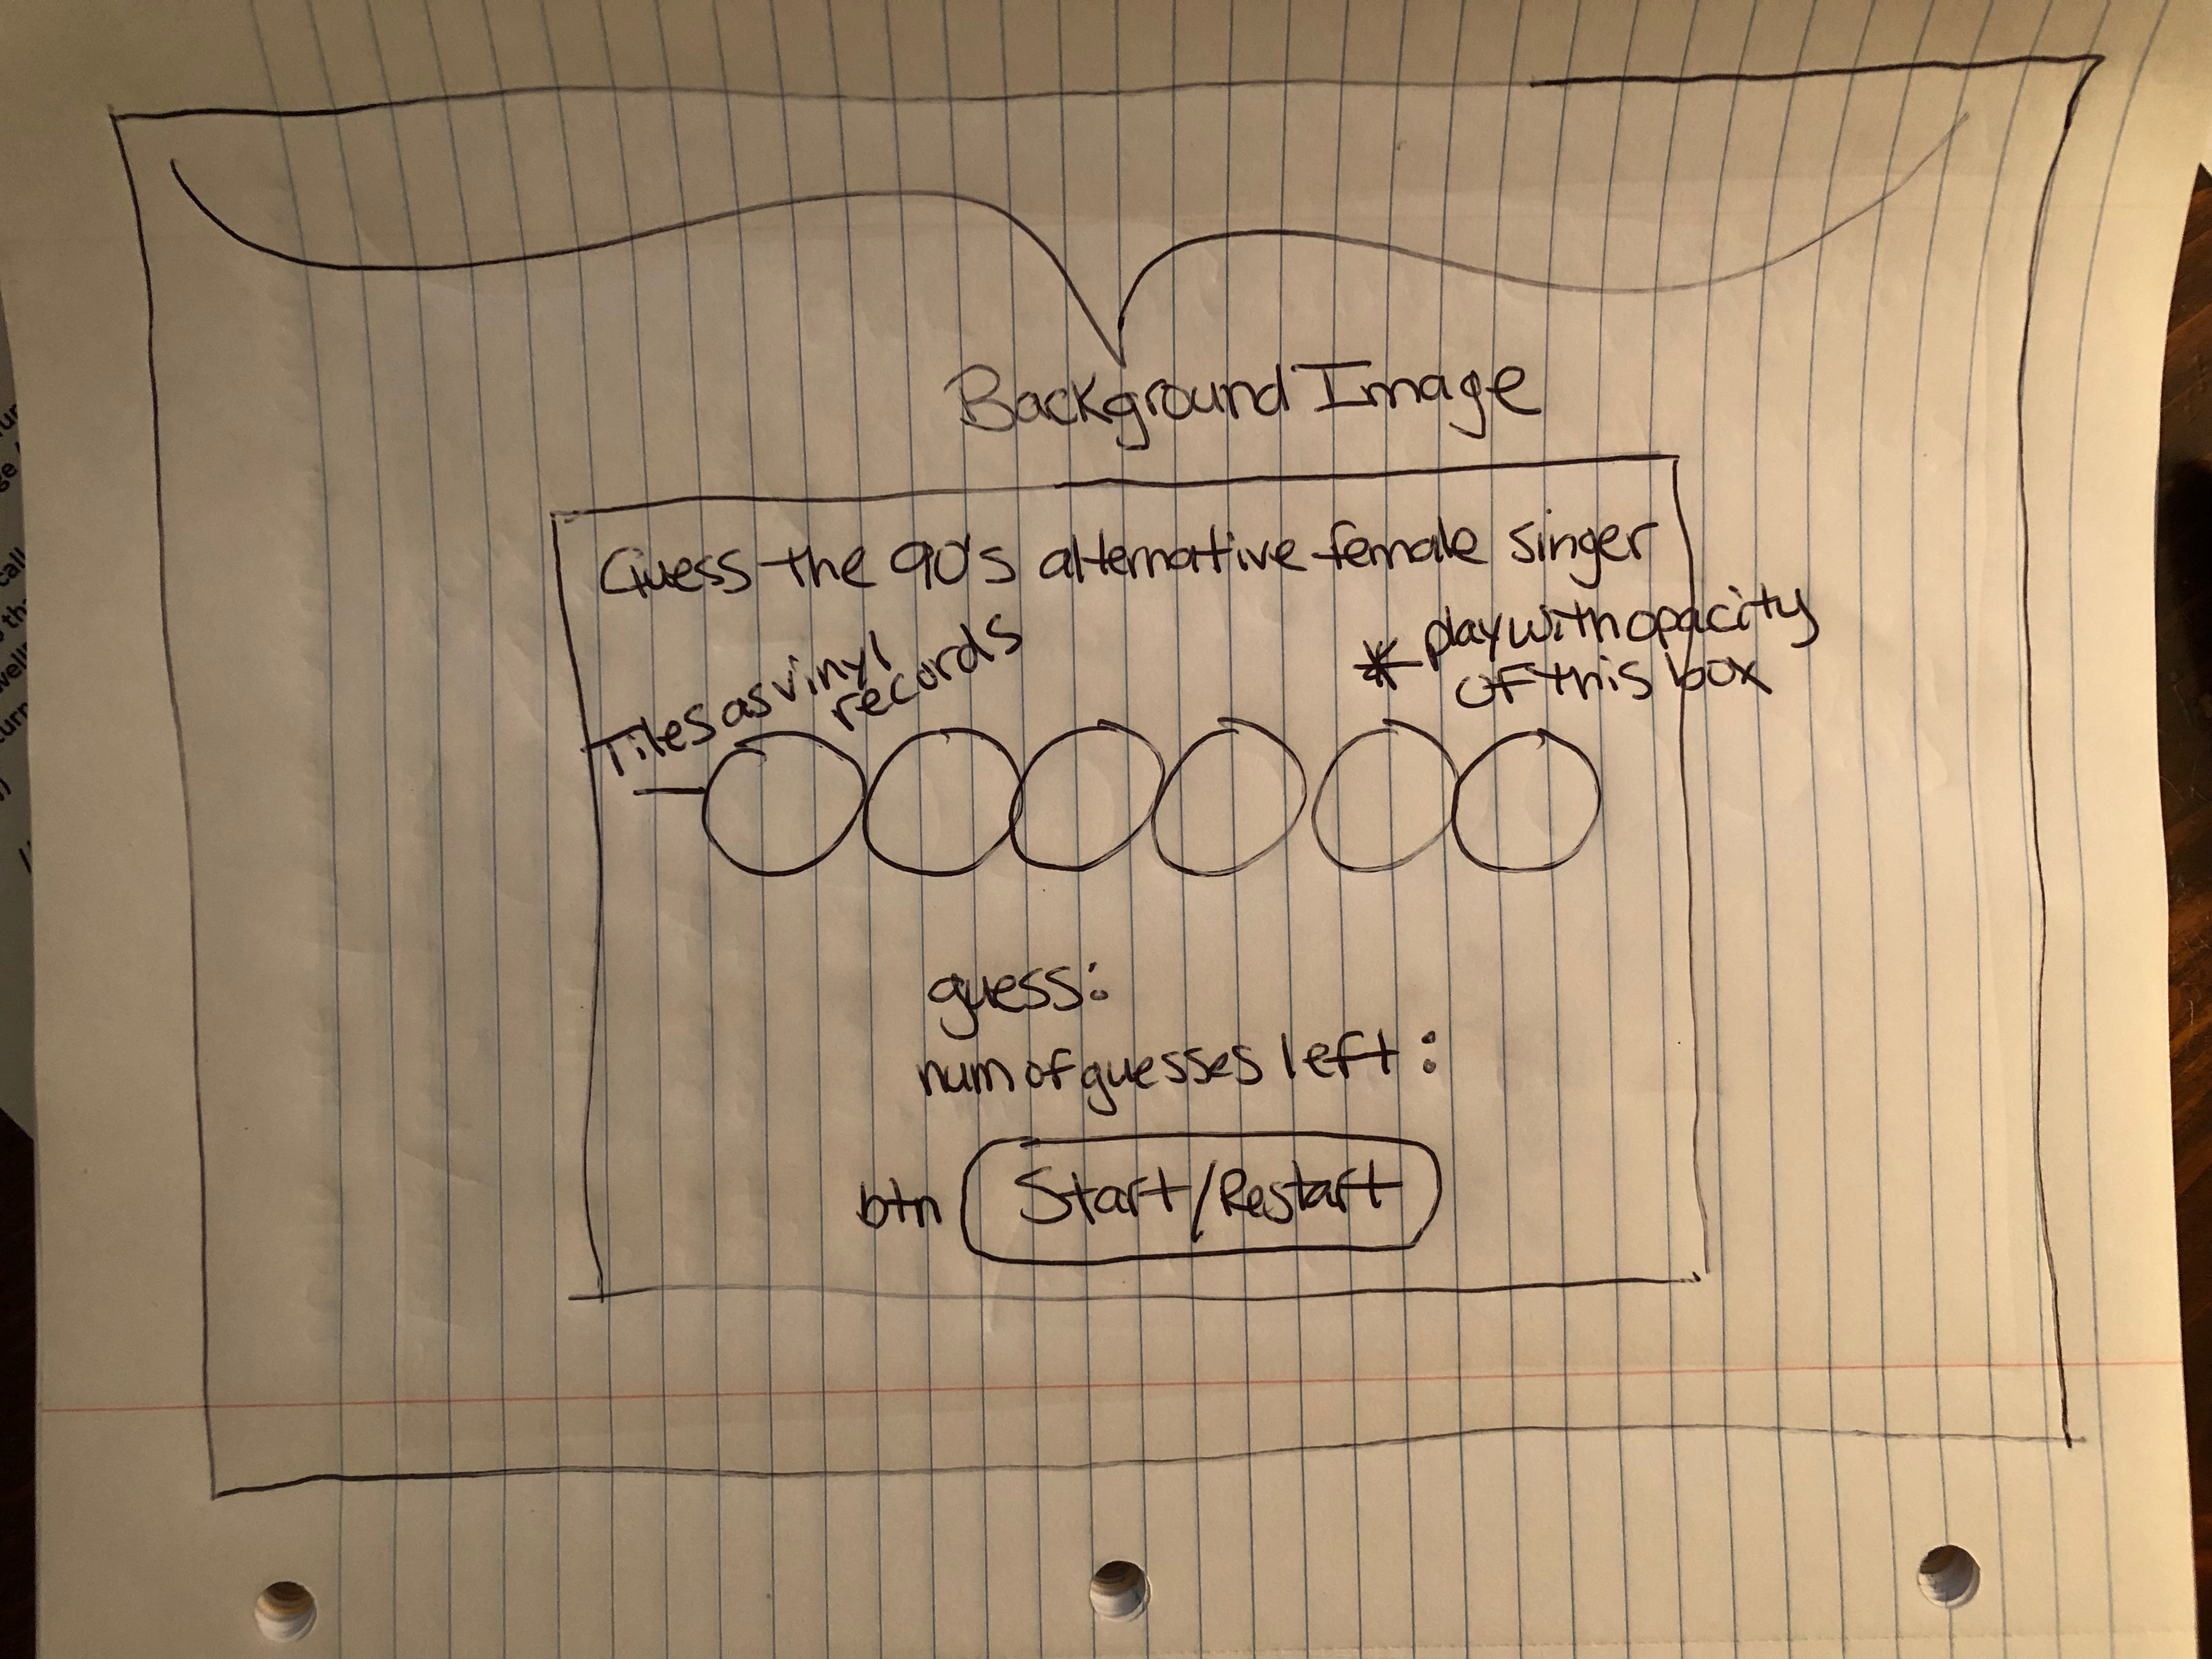 Background Image
Guess the 90's alternative female singer
Tiles as vinyl
records
* play with opacity
of this box
guess:
num of guesses left:
btn Start/Restart